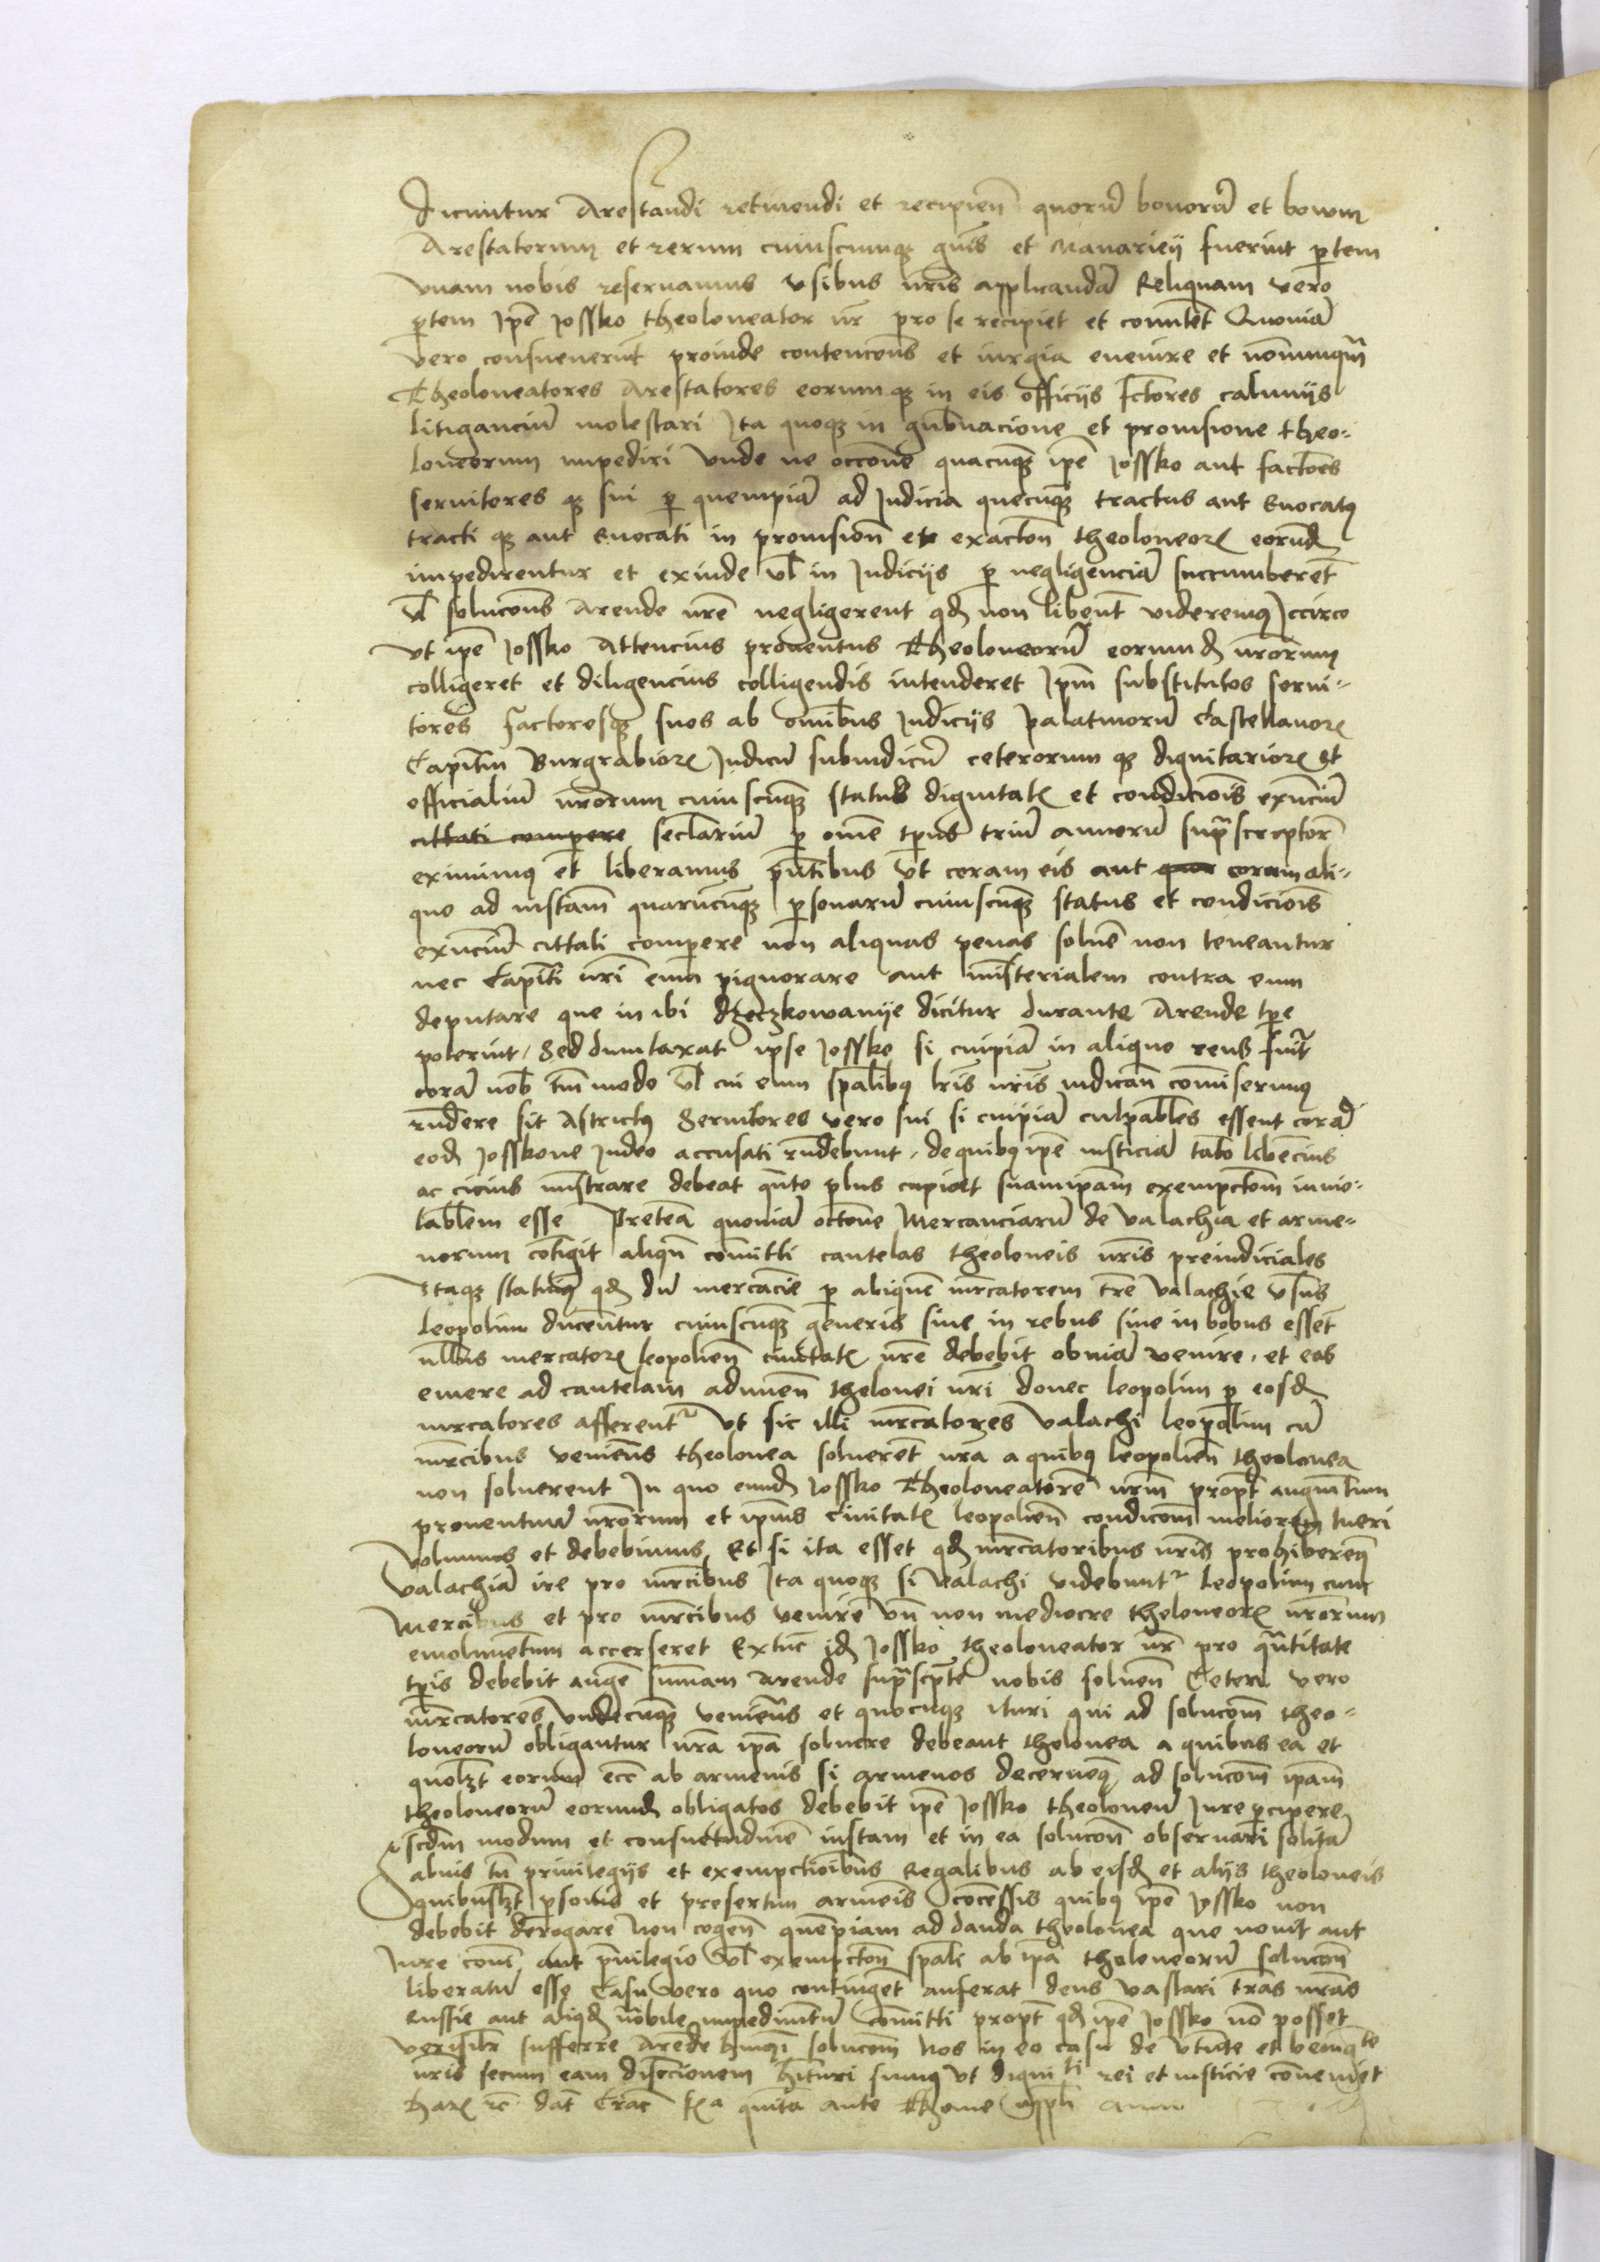 dicuntur Arestandi retinendi et recipien quoru bonoru et bovum
Arestatorum et rerum cuiuscumq gnis et manariei fuerint ptem
vnam nobis reservamus vsibus nris applicanda Reliquam vero
ptem Ipe Jossko theoloneator nr pro se recipiet et Quonia
vero consueverunt proinde contencons et iurgia evenire et nonnunqm
Theoloneatores Arestatores eorumq in eis officiis fctores calumiis
litiganciu molestari Ita quoq in gubnacione et provisione theo-
loneorum impediri Vnde ne occone quacunq ipe Jossko aut factores
servitores q sui p quempia ad Judicia quecunq tractus aut Evocatus
tracti q aut Evocati in provision et exacton theoloneor eorund
impedirentur et exinde vl in Judiciis p negligencia succumberet
vl solucons Arende nre negligerent qd non libent videremus Iccirco
vt ipe Jossko Attencius proventus Theoloneoru eorumd nrorum
colligeret et diligencius colligendis intenderet Ipm substitutos servi-
tores factoresq suos ab omibus Judiciis palatinoru Castellanor
Capitan Burgrabior Judicu subiudicu ceterorum q dignitarior et
officialiu nrorum cuiuscunq status dignitat et condicois existenciu
cittati compere seclariu p ome tpus triu annoru supra scriptor
eximimus et liberamus pntibus vt coram eis aut coram ali-
quo ad instam quarucunq psonaru cuiuscunq status et condicois
exnciu cittati compere non aliquas penas solue non teneantur
nec Capiti nri eum pignorare aut misterialem contra eum
deputare que in ibi dzeczkowanye dicitur durante Arende tpe
poterint Sed dumtaxat ipse Jossko si cuipia in aliquo reus fuit
cora nob tm modo vl cui eum spalibus lris nris iudican comiserimus
rndere sit Astrictus Servitores vero sui si cuipia culpabiles essent cora
eod Josskone Judeo accusati rndebunt de quibus ipe iusticia tanto
ac cicius mistrare debeat qnto plus cupiet suamipam exempcom invio-
lablem esse Pretea quonia occone Mercanciaru de Valachia et arme-
norum cotigit aliqn comitti cautelas theoloneis nris preiudiciales
Itaq statuimus qd du mercancie p aliquem mrcatorem tre Valachie vsus
Leopolim ducentur cuiuscunq generis sive in rebus sive in bobus essent
nullus mercator leopolien civitat nre debebit obvia venire et eas
emere ad cautelam adimen thelonei nri donec leopolim p eosd
mrcatores afferent Vt sic illi mrcatores Valachi leopolim cu
mrcibus veniens theolonea solverent nra a quibus leopolien theolonea
non solverent In quo eund Jossko Theoloneatore nrm propt augmtum
proventuu nrorum et ipius Civitat leopolien condicom meliorem tueri
Volumus et debebimus Et si ita esset qd mrcatoribus nris prohiberemus
Valachia ire pro mrcibus Ita quoq si Valachi videbunt Leopolim cum
Mercibus et pro mrcibus venire vn non mediocre theloneor nrorum
emolumentum accerseret Extunc id Jossko theoloneator nr pro qntitate
tpis debebit auge summam arende supra scpte nobis solven Ceteri vero
mrcatores vndecunq veniens et quocunq ituri qui ad solucom theo-
loneoru obligantur nra ipa solvere debeant thelonea a quibus ea et
quolzt eorum ab armenis si armenos decernemus ad solucom ipam
theoloneoru eorumd obligatos debebit ipe Jossko theoloneu Jure pcipere
scdm modum et consuetudine iustam et in ea solucon observari solita
salvis tn privilegiis et exempctioibus Regalibus ab eisd et aliis theoloneis
quibuslzt psonis et presertim armenis cocessis quibus ipe Jossko non
debebit derogare non cogen quepiam ad danda theolonea que novit aut
Jure comi aut privilegio vl exempcton spali ab ipa theloneoru solucon
liberatu esse Casu vero quo contingeret auferat deus vastari tras nras
Russie aut aliqd nobile impedimtum comitti propt qd ipe Jossko no posset
verisilr sufferre Arende hmoi solucom Nos in eo casu de et benigte
nris secum eam discrcionem hituri sumus vt dignitati rei et iusticie conveniet
har rc dat Crac fa quinta ante Thome appli anno